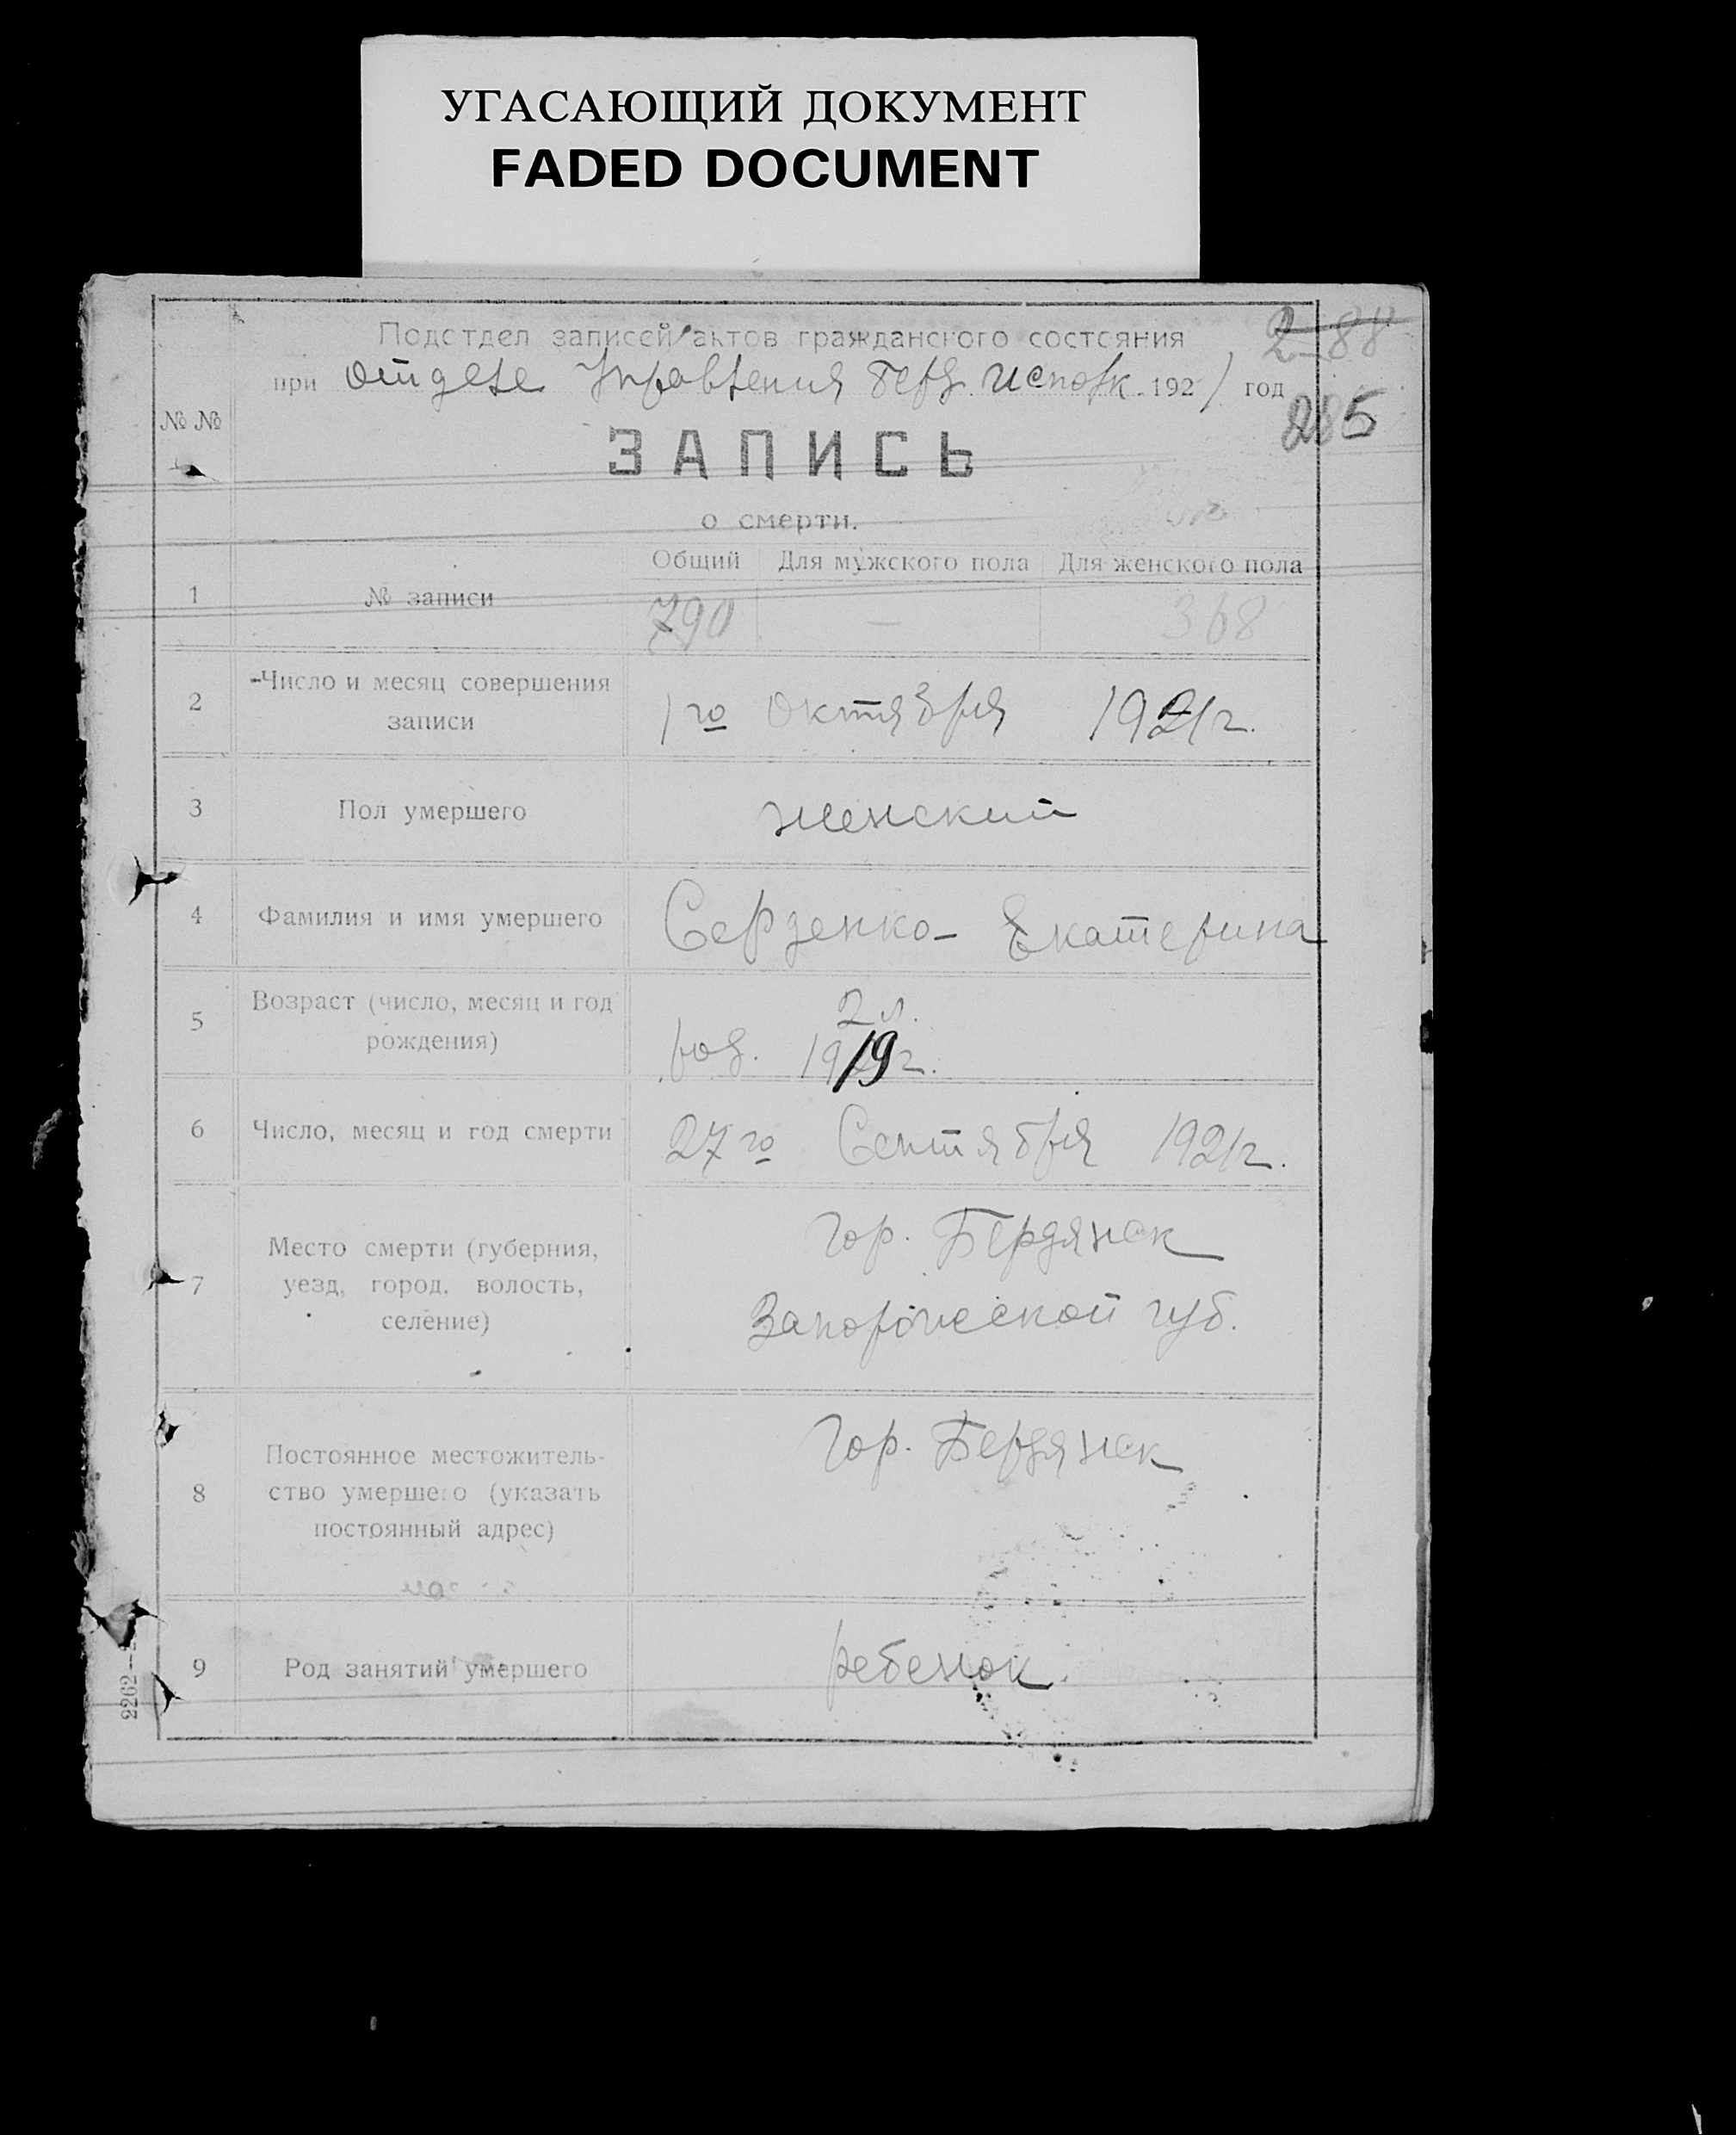 УГАСАЮЩИЙ ДОКУМЕНТ
FADED DOCUMENT
Подотдел записей актов гражданского состояния
2-88
при отделе Управления Берд. исполк. 1921 год
285
№ №
ЗАПИСЬ
о смерти.
Общий Для мужского пола Для женского пола
1 № записи 790 — 368
2 Число и месяц совершения
записи 1го октября 1921г.
3 Пол умершего женский
4 Фамилия и имя умершего Серденко- Екатерина
5 Возраст (число, месяц и год
рождения) 2 л.
род. 1919г.
6 Число, месяц и год смерти 27го Сентября 1921г.
7 Место смерти (губерния,
уезд, город, волость,
селение)
гор. Бердянск
Запорожской губ.
8 Постоянное местожитель-
ство умершего (указать
постоянный адрес)
гор. Бердянск
9 Род занятий умершего ребенок.
2262—